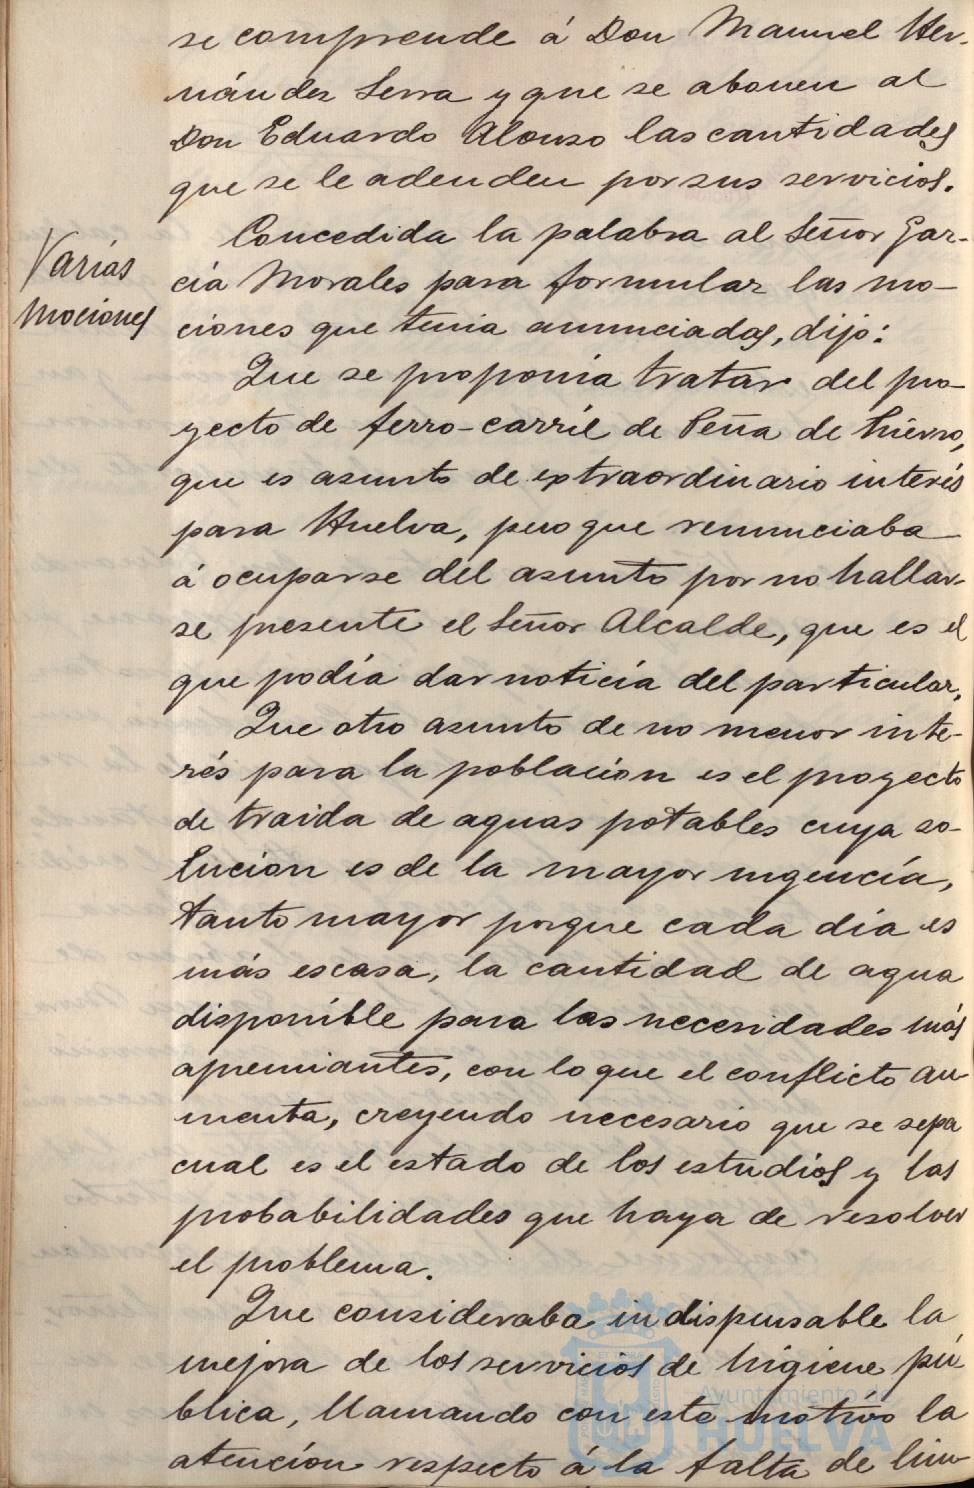 se comprende á Don Manuel Her-
nández Serra y que se abonen al
Don Eduardo Alonso las cantidades
que se le adeuden por sus servicios.
Concedida la palabra al Señor Gar-
Varias
cía Morales para formular las mo-
mociones
ciones que tenia anunciadas, dijo:
Que se proponía tratar del pro-
yecto de ferro-carril de Peña de hierro,
que es asunto de extraordinario interés
para Huelva, pero que renunciaba
á ocuparse del asunto por no hallar-
se presente el Señor Alcalde, que es el
que podía dar noticia del particular.
Que otro asunto de no menor inte-
rés para la población es el proyecto
de traida de aguas potables cuya so-
lución es de la mayor urgencía,
tanto mayor porque cada día es
más escasa, la cantidad de agua
disponíble para las necesidades más
apremiantes, con lo que el conflicto au-
menta, creyendo necesario que se sepa
cual es el estado de los estudios y las
probabilidades que haya de resolver
el problema.
Que consideraba indispensable la
mejora de los servicios de higiene pú
blica, llamando con este motivo la
atención respecto á la falta de lim-
Ayuntamiento de
HUELVA